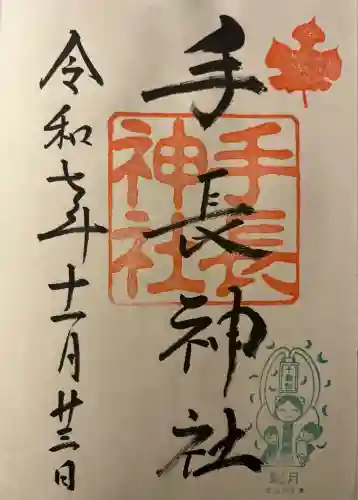 手長神社
手長
神社
令和七年十一月廿三日